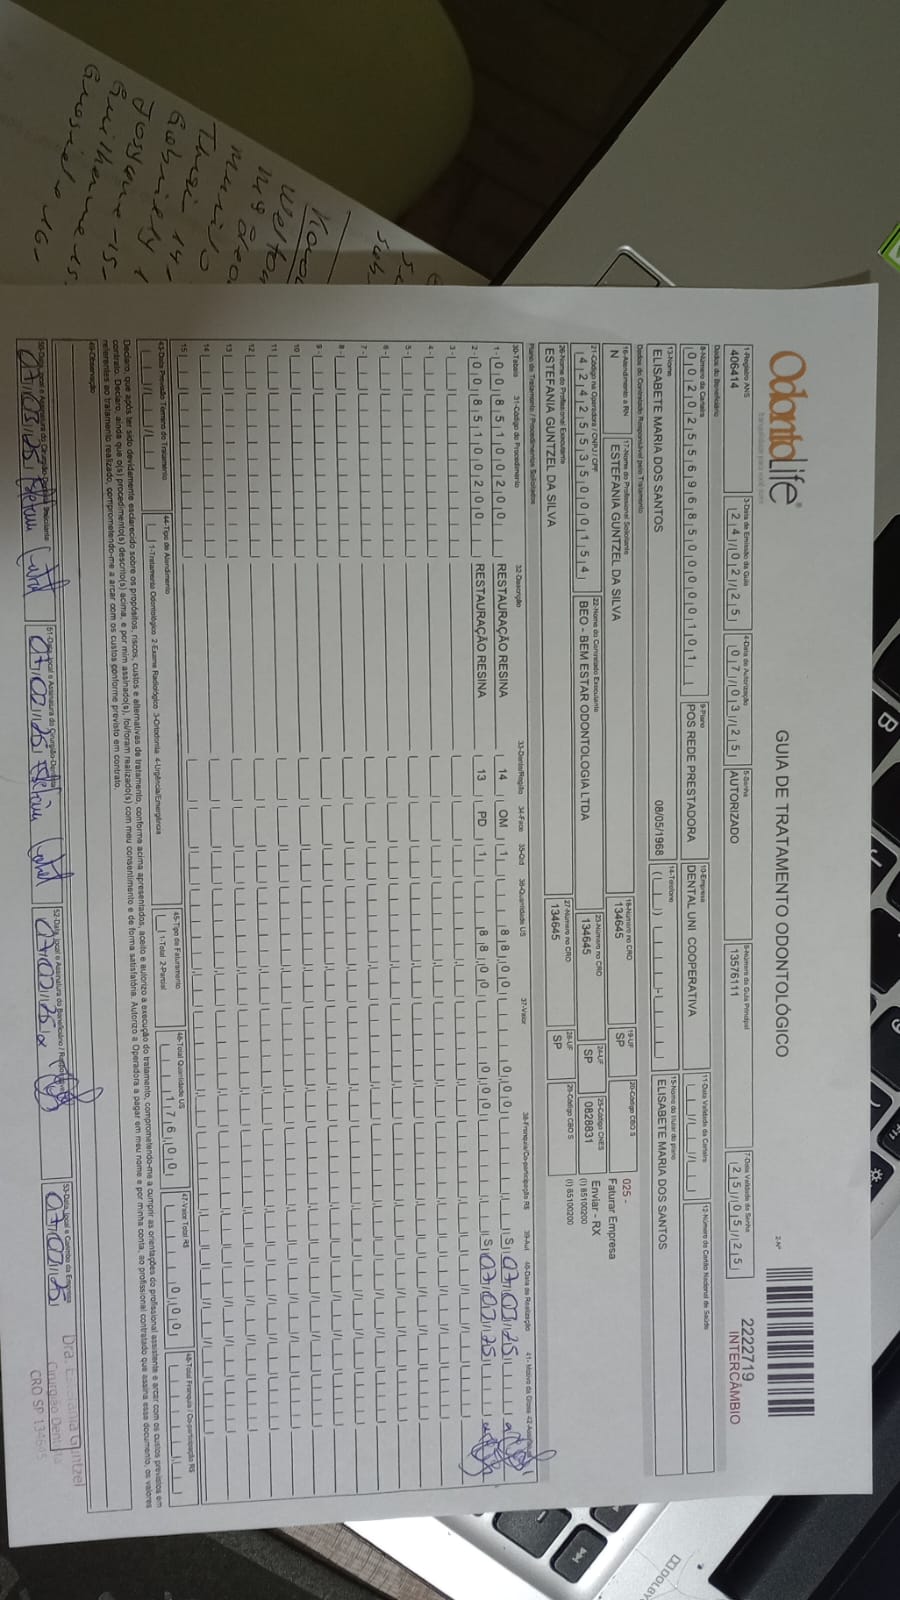 OdontoLife®
transparência para você sorrir
GUIA DE TRATAMENTO ODONTOLÓGICO
2-Nº
2222719
INTERCÂMBIO
1-Registro ANS
406414
3-Data de Emissão da Guia
24/02/25
4-Data de Autorização
07/03/25
5-Senha
AUTORIZADO
6-Número da Guia Principal
13576111
7-Data Validade da Senha
25/05/25
Dados do Beneficiário
8-Número da Carteira
00202556968500000101
9-Plano
POS REDE PRESTADORA
10-Empresa
DENTAL UNI COOPERATIVA
11-Data Validade da Carteira
12-Número do Cartão Nacional de Saúde
13-Nome
ELISABETE MARIA DOS SANTOS
08/05/1968
14-Telefone
15-Nome do titular do plano
ELISABETE MARIA DOS SANTOS
Dados do Contratado Responsável pelo Tratamento
16-Atendimento a RN
N
17-Nome do Profissional Solicitante
ESTEFANIA GUNTZEL DA SILVA
18-Número no CRO
134645
19-UF
SP
20-Código CBO S
025 -
Faturar Empresa
21-Código na Operadora / CNPJ / CPF
42425535000154
22-Nome do Contratado Executante
BEO - BEM ESTAR ODONTOLOGIA LTDA
23-Número no CRO
134645
24-UF
SP
25-Código CNES
0828831
Enviar - RX
(I) 85100200
26-Nome do Profissional Executante
ESTEFANIA GUNTZEL DA SILVA
27-Número no CRO
134645
28-UF
SP
29-Código CBO S
(I) 85100200
Plano de Tratamento / Procedimentos Solicitados
30-Tabela 31-Código do Procedimento 32-Descrição 33-Dente/Região 34-Face 35-Qtd 36-Quantidade US 37-Valor 38-Franquia/Co-participação R$ 39-Aut 40-Data de Realização 41-Motivo da Glosa
1- 00 85100200 RESTAURAÇÃO RESINA 14 OM 1 88,00 0,00 S 07/03/25
2- 00 85100200 RESTAURAÇÃO RESINA 13 PD 1 88,00 0,00 S 07/03/25
3 -
4 -
5 -
6 -
7 -
8 -
9 -
10
11
12
13
14
15
43-Data Previsão Término do Tratamento
44-Tipo de Atendimento
1-Tratamento Odontológico 2-Exame Radiológico 3-Ortodontia 4-Urgência/Emergência
45-Tipo de Faturamento
1-Total 2-Parcial
46-Total Quantidade US
176,00
47-Valor Total R$
0,00
48-Total Franquia / Co-participação R$
Declaro, que após ter sido devidamente esclarecido sobre os propósitos, riscos, custos e alternativas de tratamento, conforme acima apresentados, aceito e autorizo a execução do tratamento, comprometendo-me a cumprir as orientações do profissional assistente e arcar com os custos previstos em
contrato. Declaro, ainda que o(s) procedimento(s) descrito(s) acima, e por mim assinado(s), foi/foram realizado(s) com meu consentimento e de forma satisfatória. Autorizo a Operadora a pagar em meu nome e por minha conta, ao profissional contratado que assina esse documento, os valores
referentes ao tratamento realizado, comprometendo-me a arcar com os custos conforme previsto em contrato.
49-Observação
07/03/25
51-Data, local e Assinatura do Cirurgião-Dentista
07/03/25
52-Data, local e Assinatura do Beneficiário
07/03/25
53-Data, local e Carimbo da Empresa
07/03/25
Guntzel
Cirurgião Dentista
CRO SP 134645
Guilherme -15-
DOLBY
B